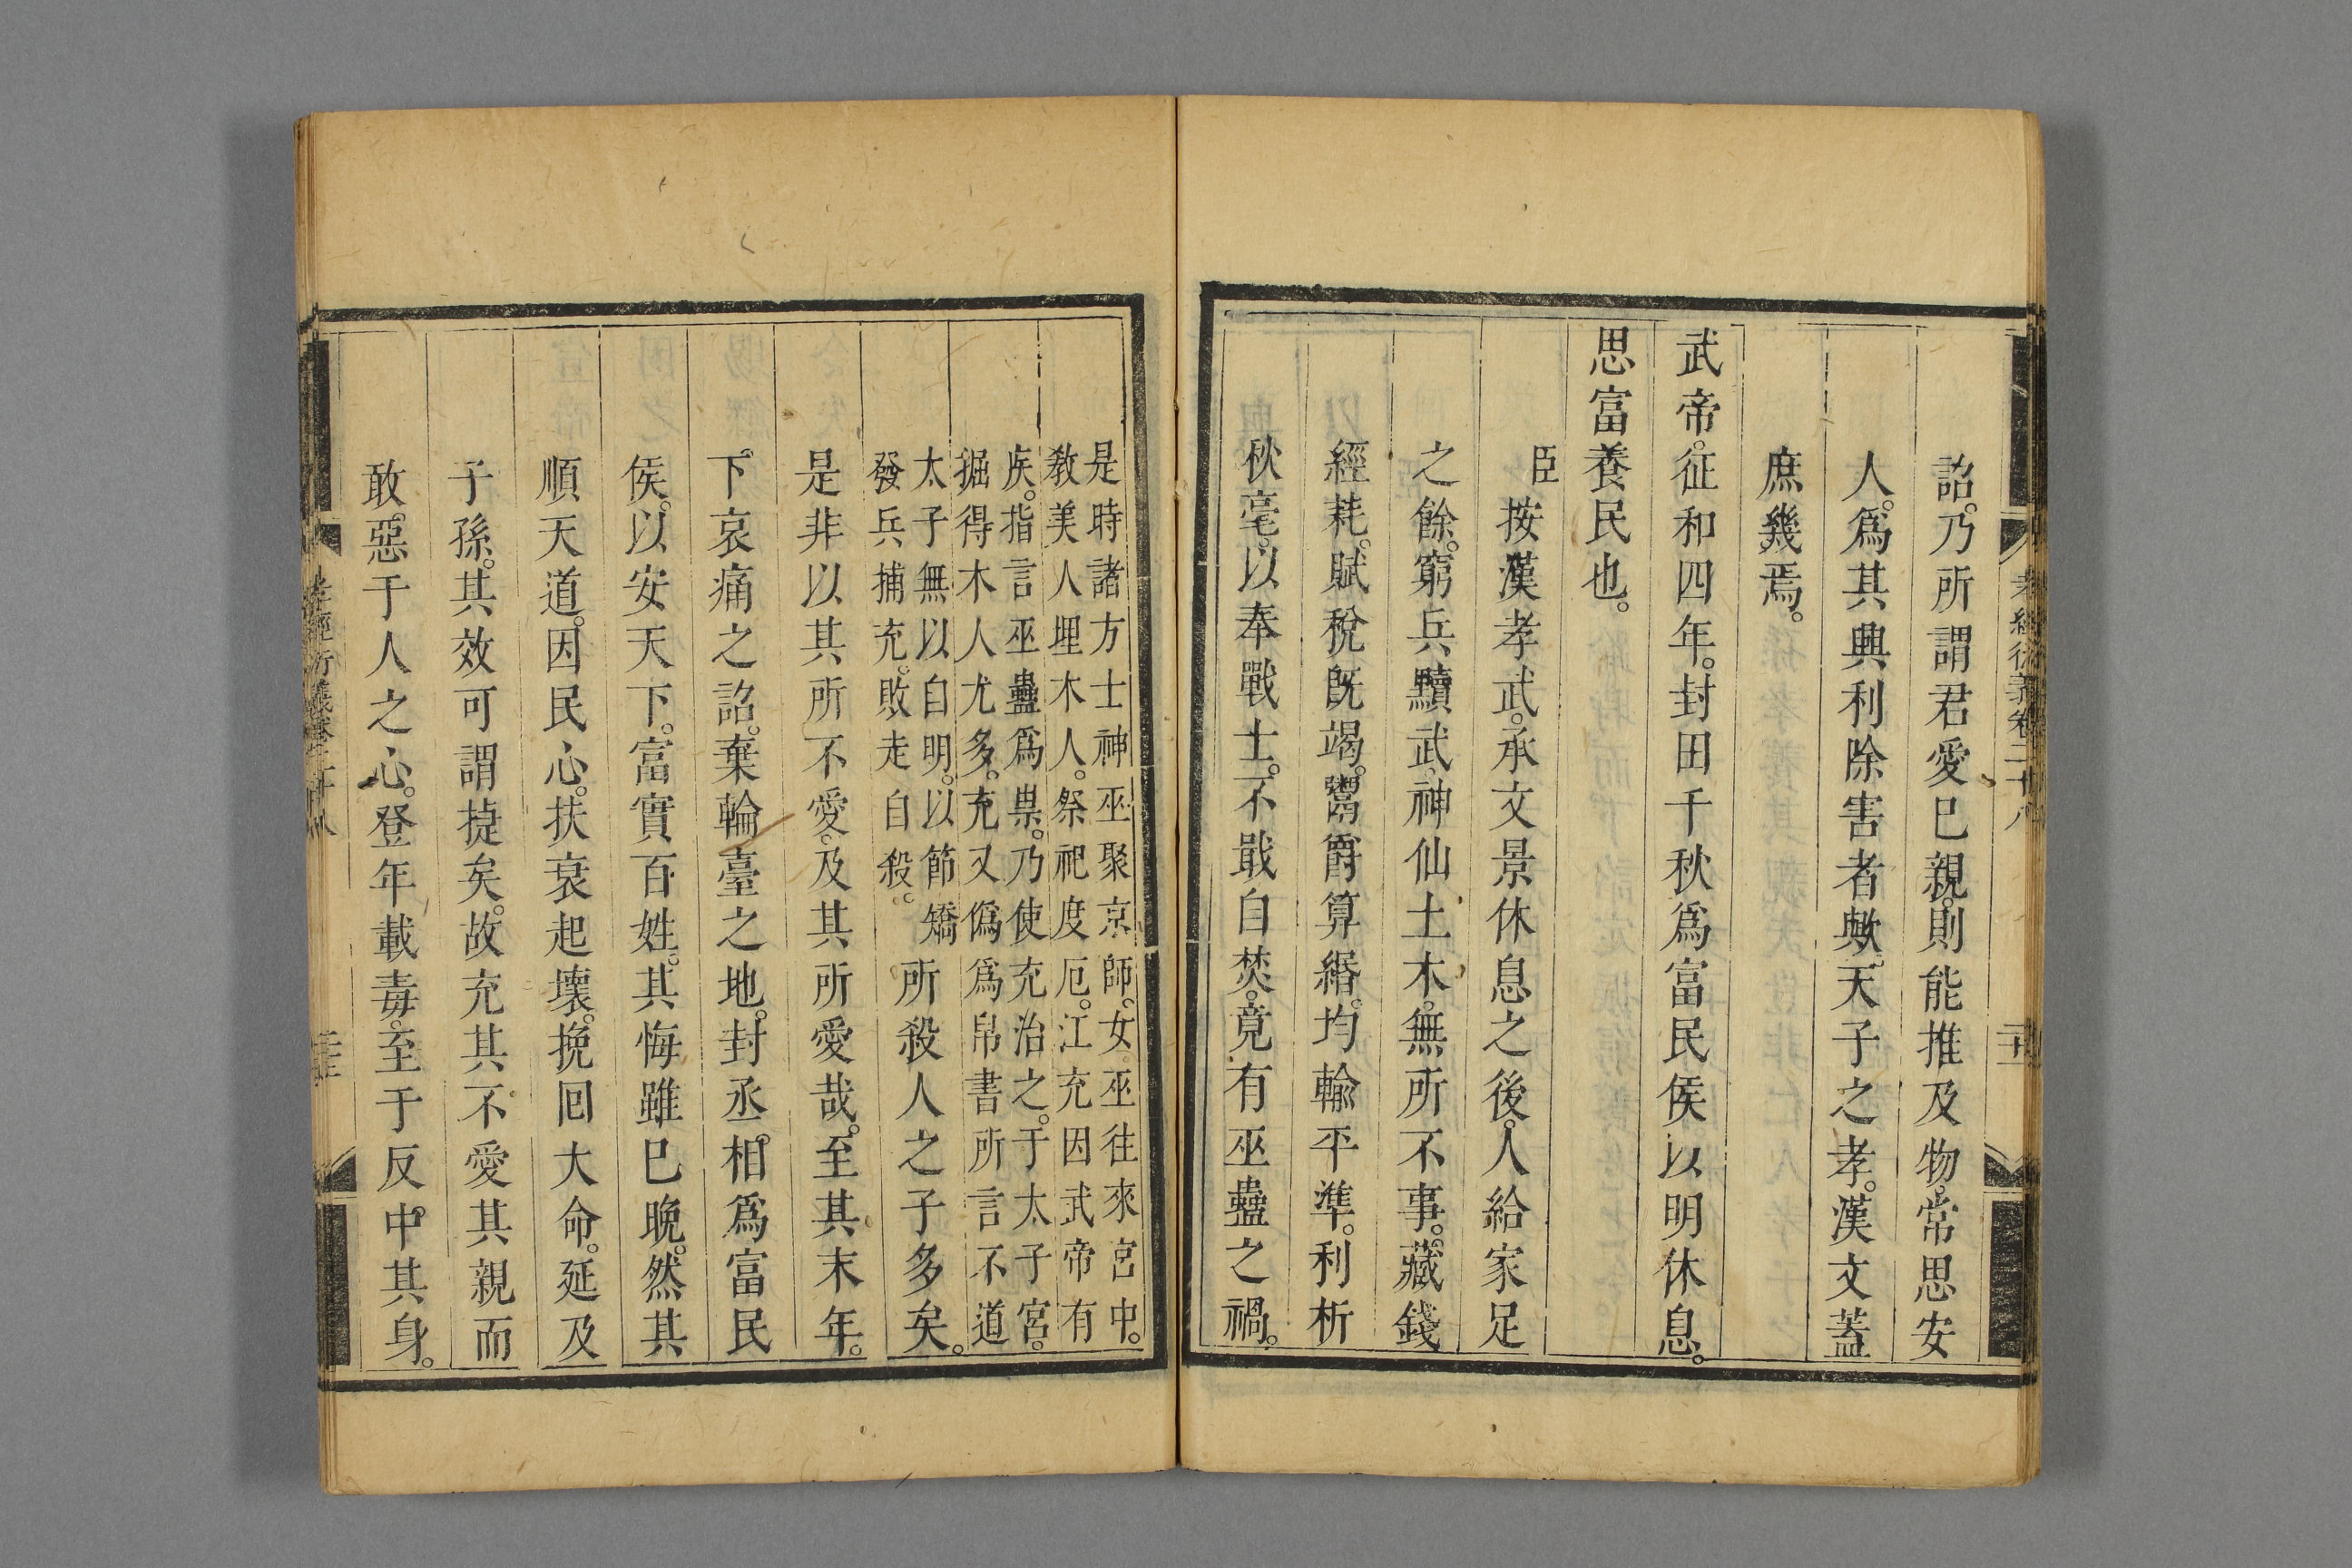 孝經衍義卷二十八
詔。乃所謂君愛已親。則能推及物。常思安
人。爲其興利除害者歟。天子之孝。漢文蓋
庶幾焉。
武帝。征和四年。封田千秋爲富民侯以明休息。
思富養民也。
臣按漢孝武。承文景休息之後。人給家足
之餘。窮兵黷武。神仙土木。無所不事。藏錢
經耗。賦稅旣竭。鬻爵算緡。均輸平準。利析
秋毫。以奉戰士。不戢自焚。竟有巫蠱之禍。
是時諸方士神巫聚京師。女巫往來宮中。
教美人埋木人。祭祀度厄。江充因武帝有
疾。指言巫蠱爲祟。乃使充治之。于太子宮。
掘得木人尤多。充又僞爲帛書所言不道
太子無以自明。以節矯
發兵捕充。敗走自殺。
所殺人之子多矣。
是非以其所不愛。及其所愛哉。至其末年。
下。哀痛之詔。棄輪臺之地。封丞相爲富民
侯。以安天下。富實百姓。其悔雖巳晚。然其
順天道。因民心。扶衰起壞。挽回大命。延及
子孫。其效可謂捷矣。故充其不愛其親而
敢。惡于人之心。登年載毒。至于反中其身。
孝經衍義卷二十八